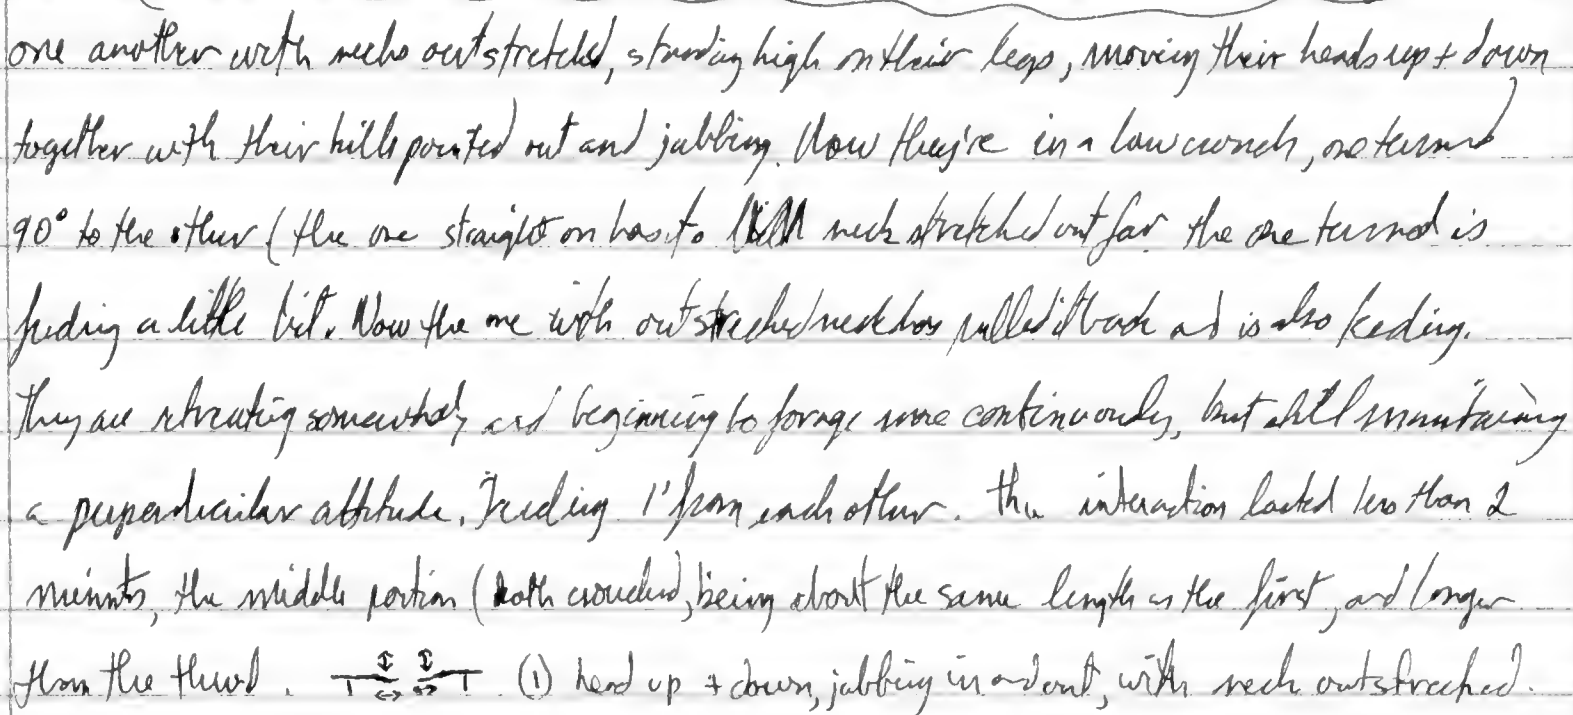 one another with necks outstretched, standing high on their legs, moving their heads up + down
together with their bills pointed out and jabbing. Now they're in a low crouch, one turned
90° to the other (the one straight on has its neck stretched out far the one turned is
feeding a little bit. Now the one with outstreched neck has pulled it back and is also feeding.
They are retreating somewhat, and beginning to forage more continuously, but still maintaining
a perpendicular attitude. Feeding 1' from each other. The interaction lasted less than 2
minuts, the middle portion (both crouched) being about the same length as the first, and longer
than the third. (1) head up + down, jabbing in and out, with neck outstreched.